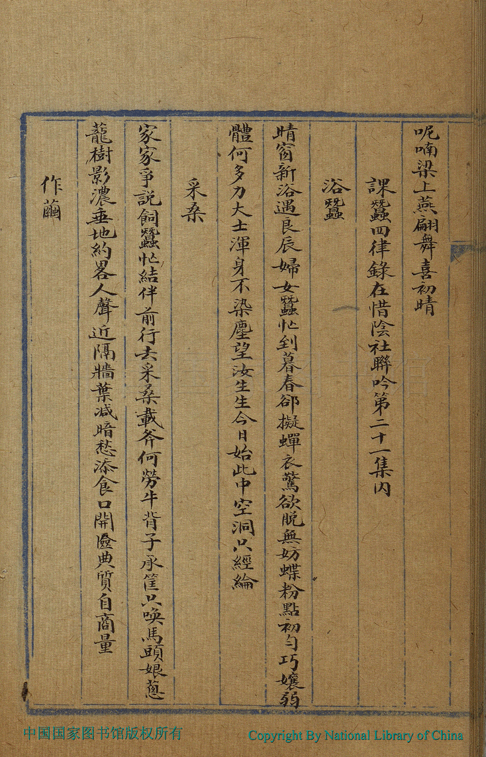 呢喃梁上燕翩舞喜初晴
課蠶四律錄在惜陰社聯吟第二十一集內
浴蠶
晴窗新浴遇良辰婦女蠶忙到暮春郤擬蟬衣驚欲脫無妨蝶粉點初勻巧孃弱
體何多力大士渾身不染塵望汝生生今日始此中空洞只經綸
采桑
家家爭説飼蠶忙結伴前行去采桑載斧何勞牛背子承筐只喚馬頭娘蔥
蘢樹影濃垂地約畧人聲近隔牆葉減暗愁添食口開奩典質自商量
作繭
中国国家图书馆版权所有
Copyright By National Library of China